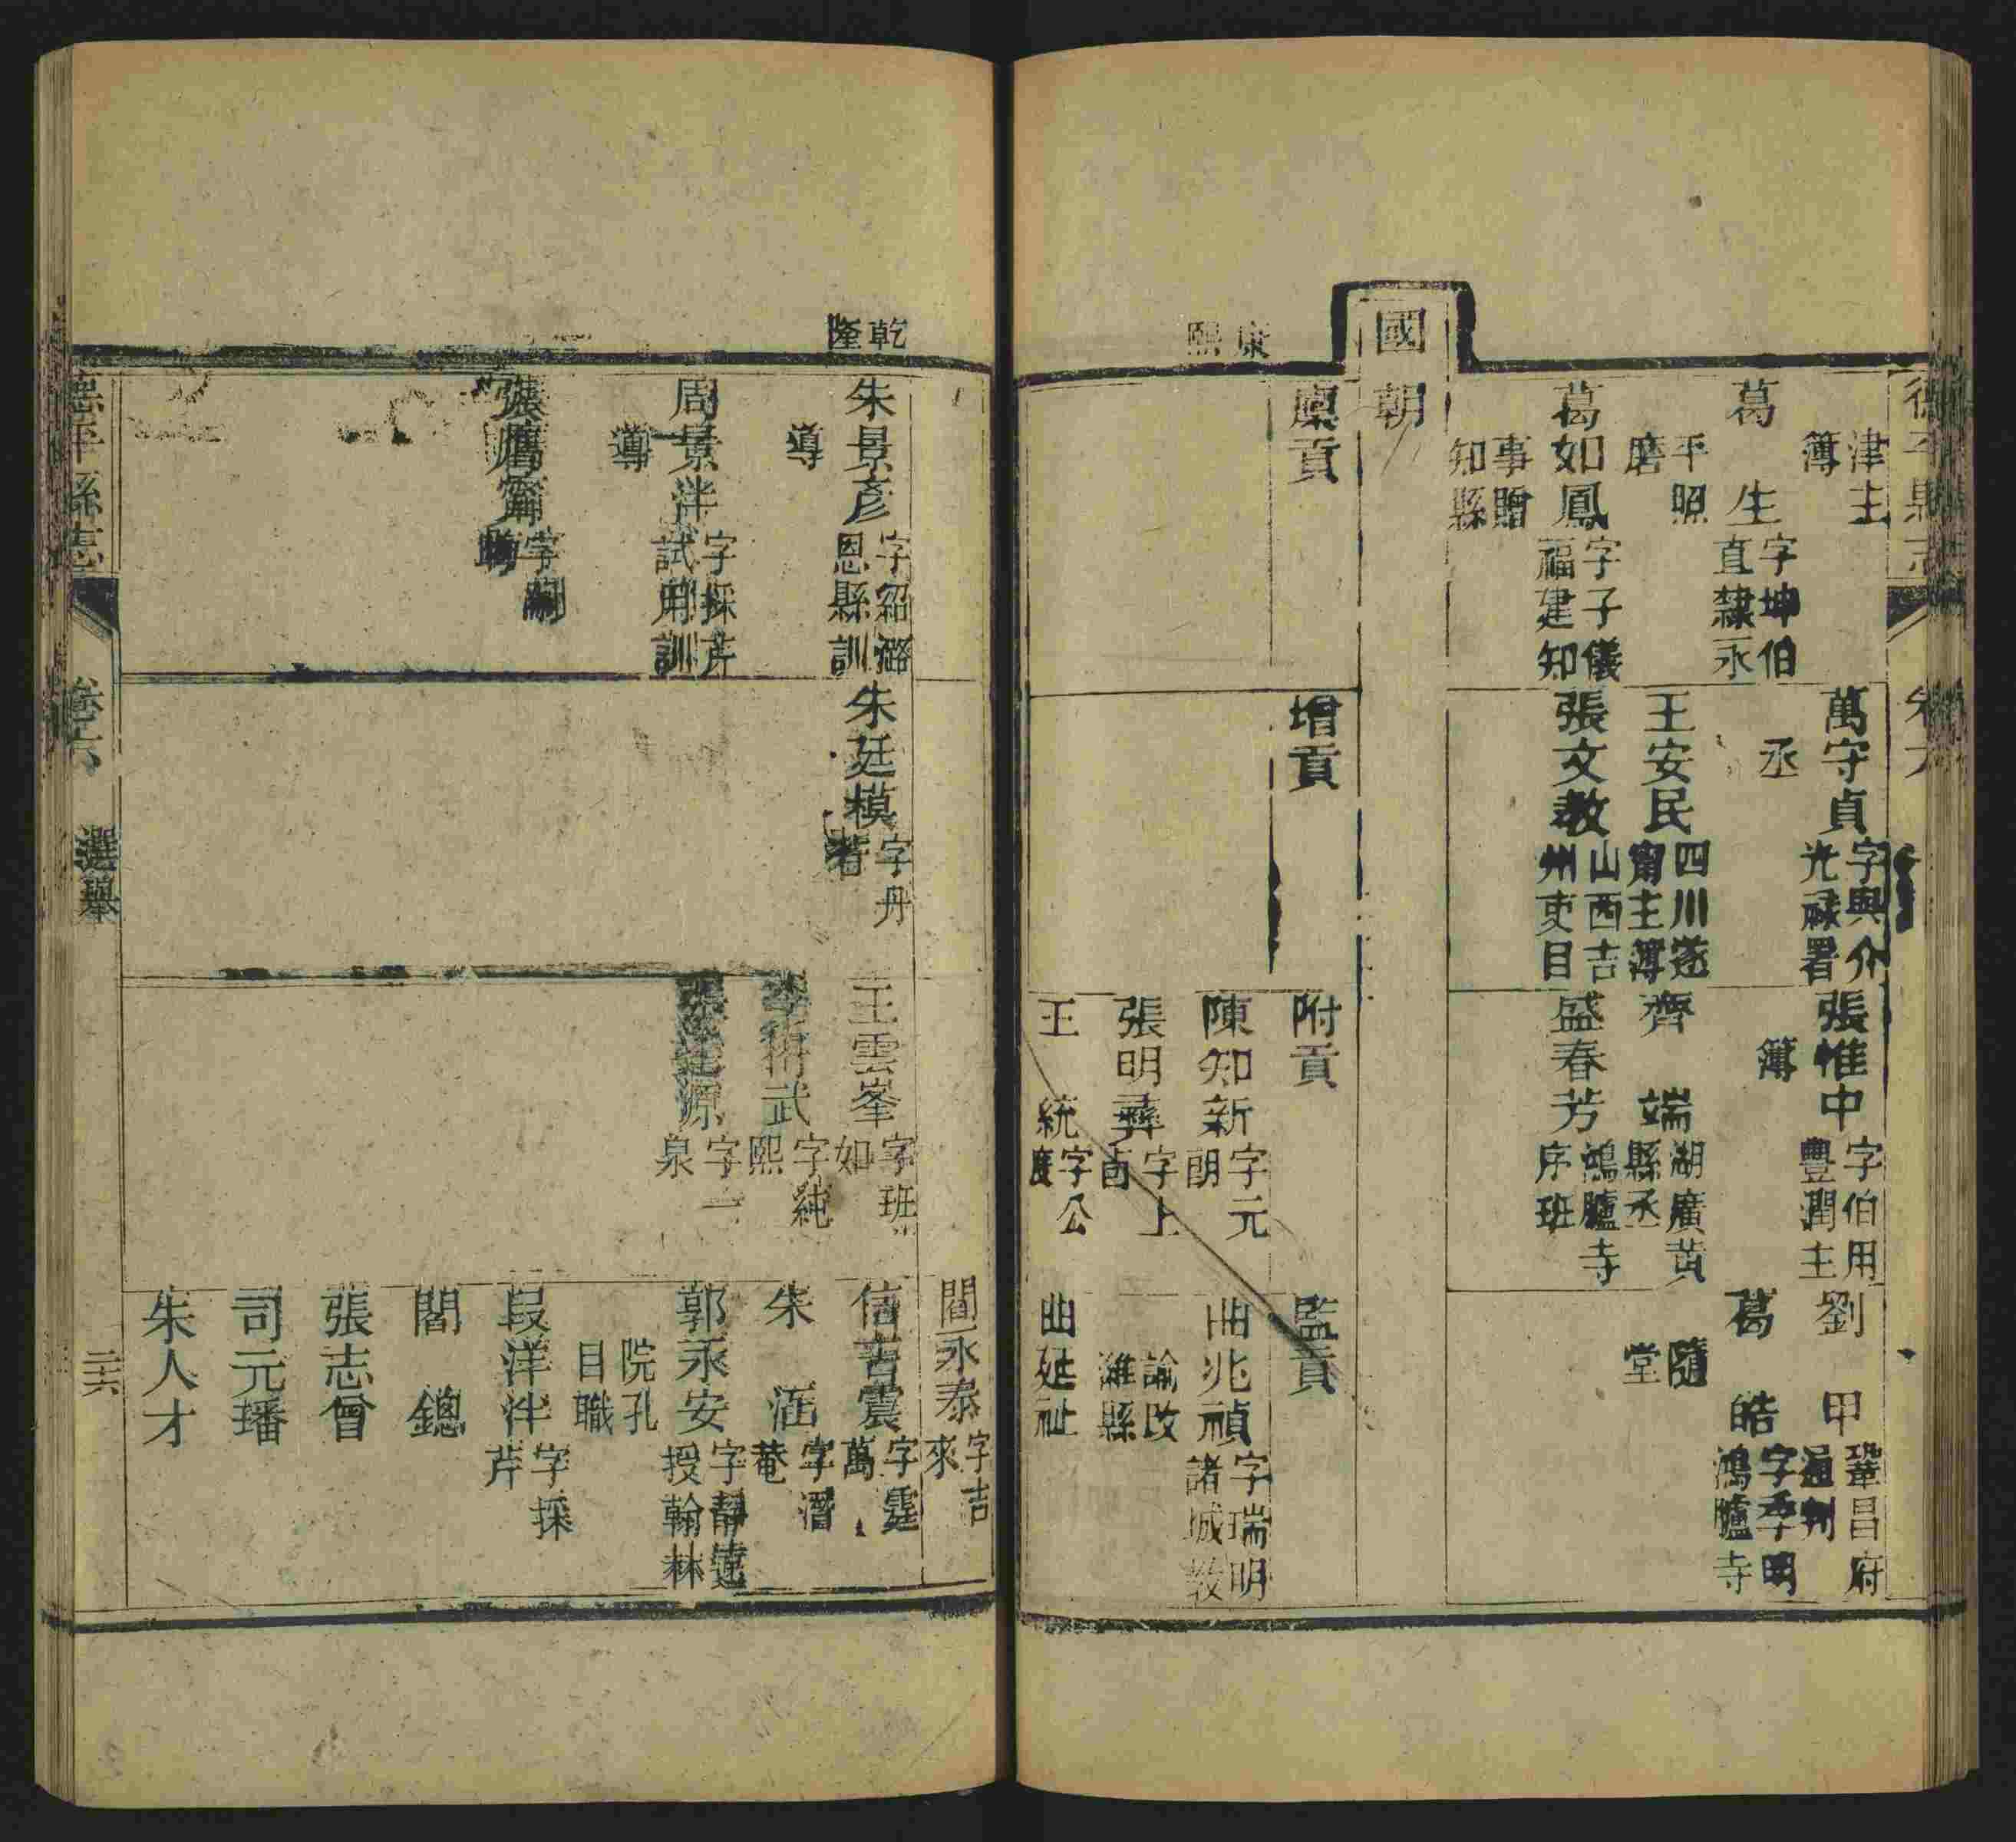 德平縣志
卷六
津主
簿
葛 生字坤伯
直隸永
平照
磨
葛如鳳字子儀
福建知
事贈
知縣
萬守貞字與介
光祿署
丞
王安民四川遂
甯主簿
張文教山西吉
州吏目
張惟中字伯用
豐潤主
簿
齊 端湖廣黃
縣丞
盛春芳鴻臚寺
序班
劉 甲鞏昌府
通判
葛 皓字季明
鴻臚寺
隨
堂
國朝
康熙
廩貢
增貢
附貢
陳知新字元
朗
張明彝字上
卣
王 統字公
監貢
曲兆禎字瑞明
諸城教
諭改
濰縣
曲延祉
乾隆
朱景彥字紹潞
恩縣訓
導
周景泮字採芹
試用訓
導
張鷹
朱廷模字丹
若
王雲峯字班
如
李術武字純
熙
張逢源字一
泉
閻永泰字吉
來
信吉震字霆
萬
朱 涵字潛
菴
郭永安字靜遠
授翰林
院孔
目職
段洋泮字採
芹
閻 鏓
張志曾
司元璠
朱人才
德平縣志
卷六
選舉
二六